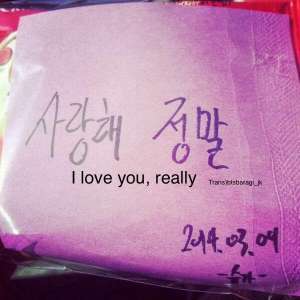 사랑해 정말
I love you, really
Trans)btsbaragi_jk
2014.03.09